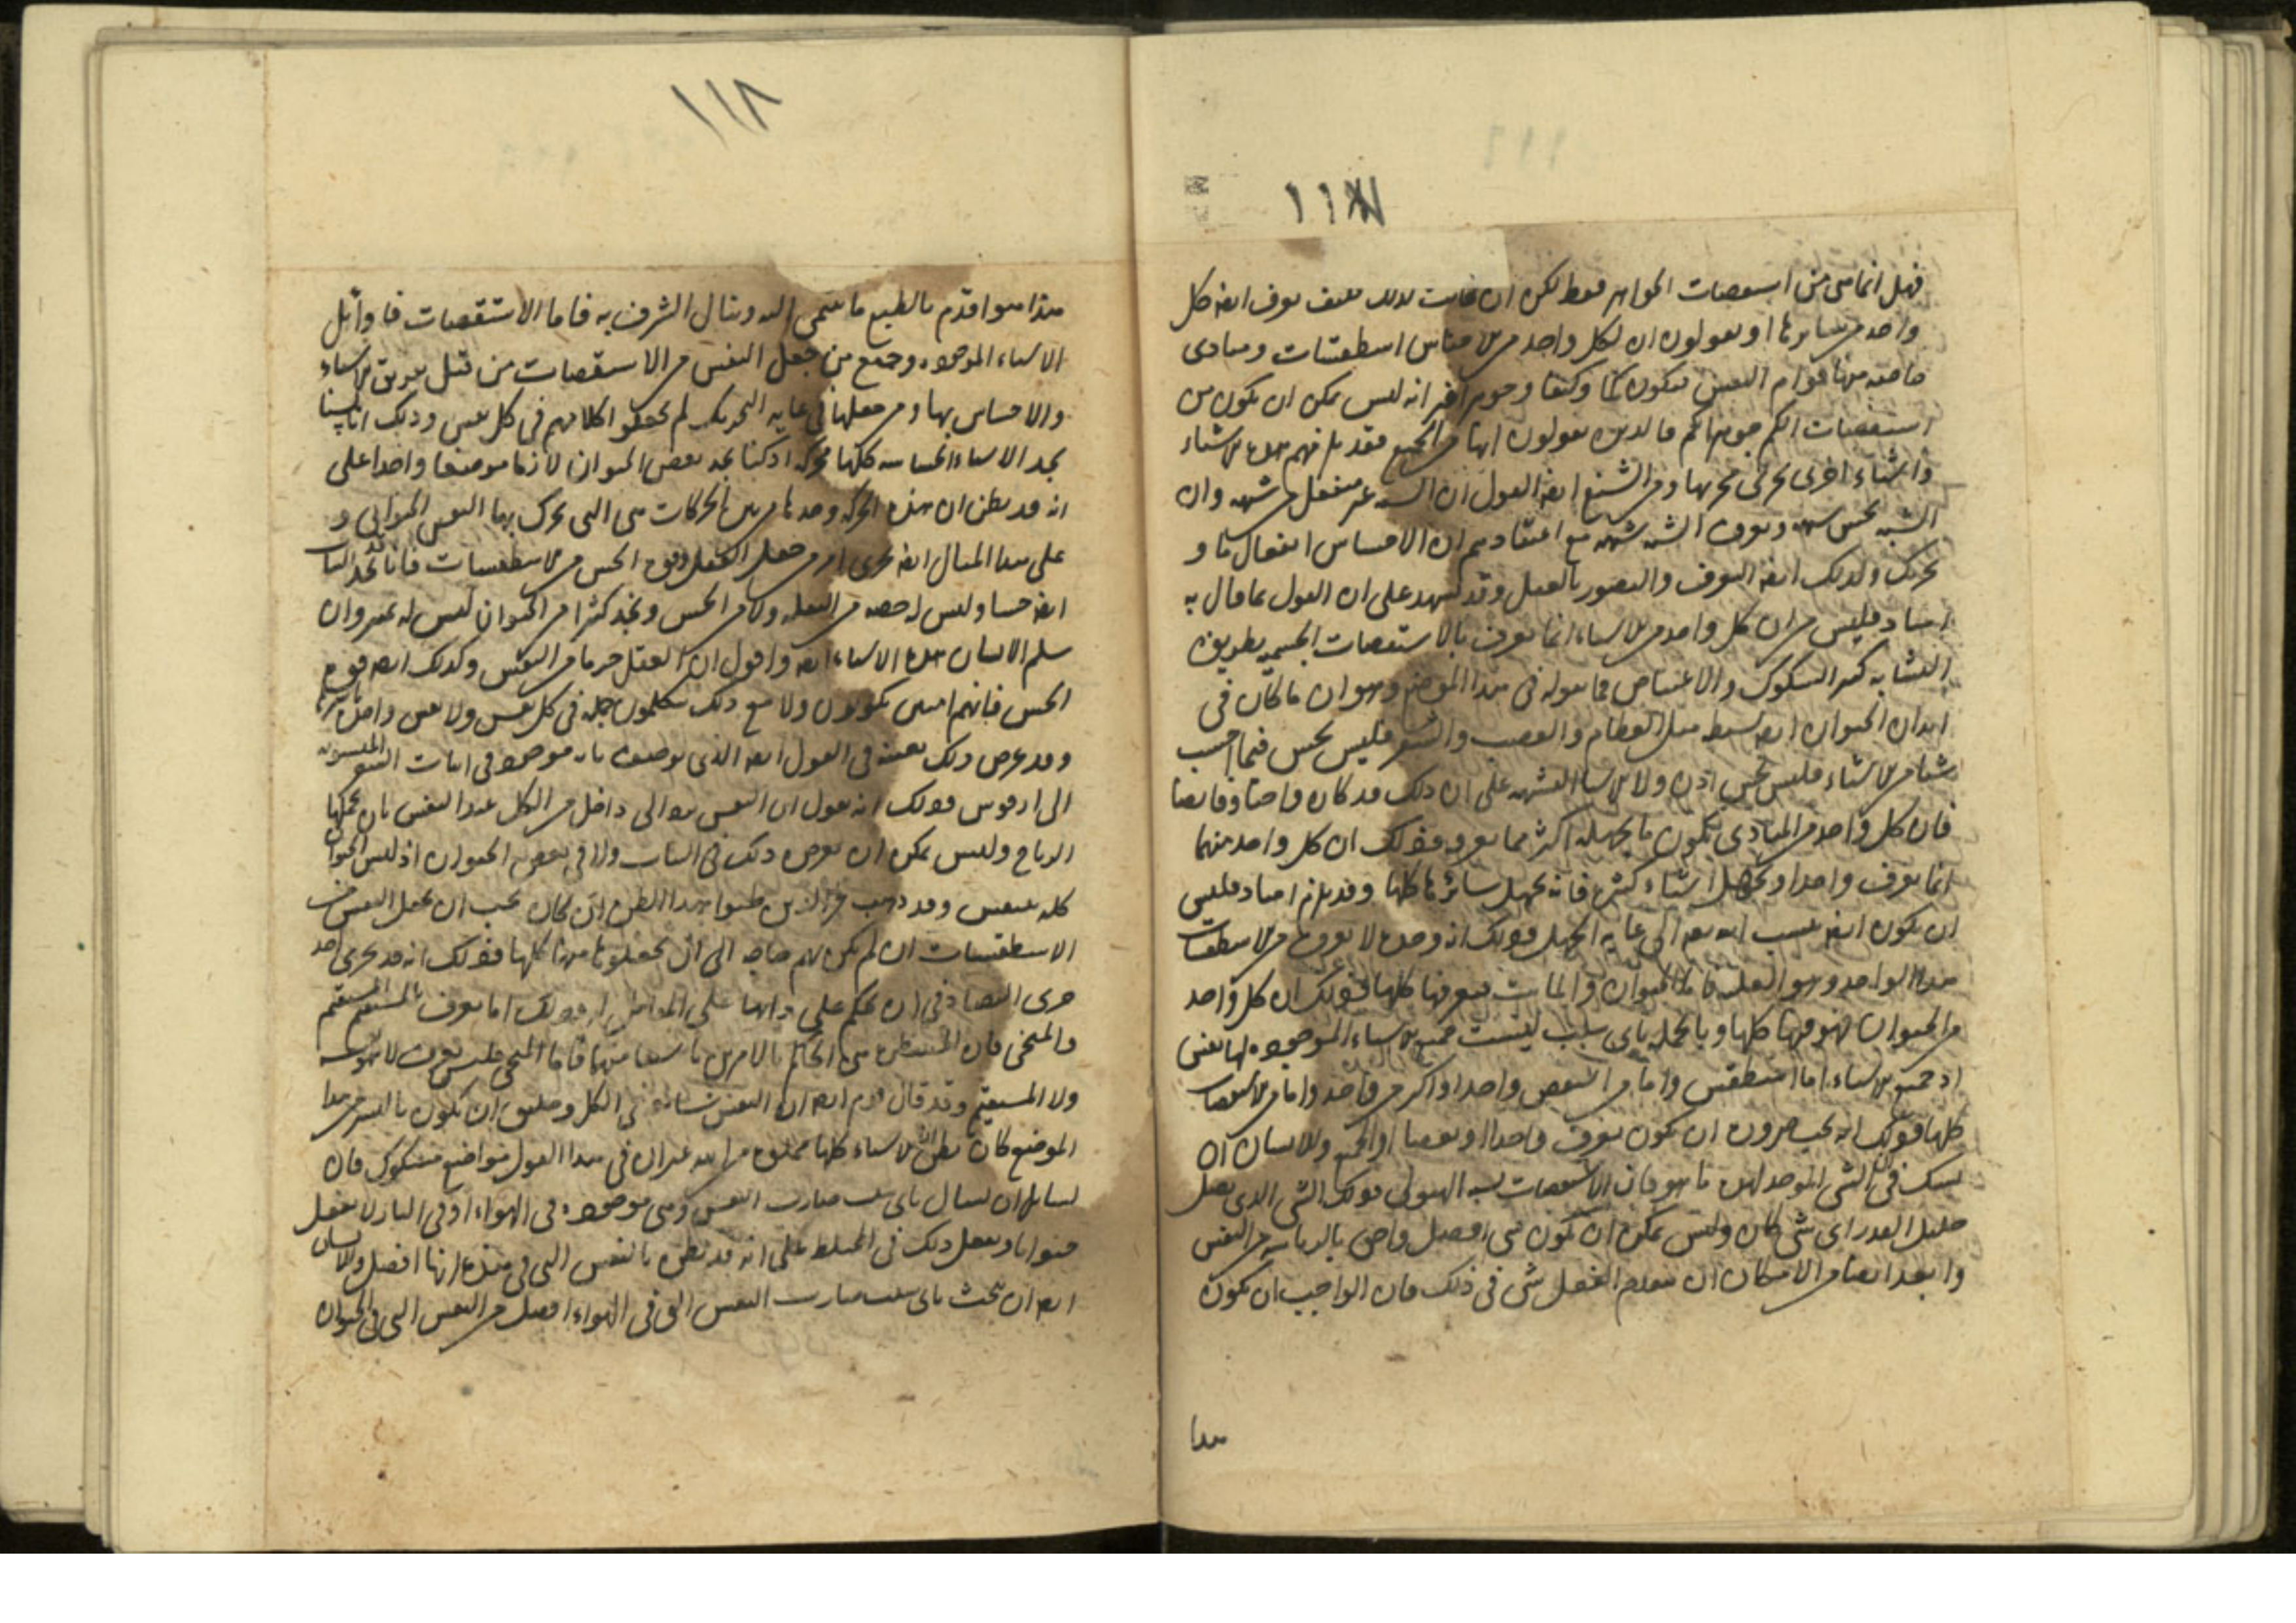 ١١٨
فهل انما هى من اسطقصات الجواهر فقط لكن ان كانت كذلك فكيف يعرف ايضا كل
واحد من سايرها او يقولون ان لكل واحد من الاجناس اسطقسات ومبادى
خاصية منها قوام النفس فيكون كما وكيفا وجوهرا غير انه ليس يمكن ان يكون من
استقصات الكم جوهرا لا كم فالذين يقولون انها من الجميع فقد يلزمهم هذه الاشياء
واشياء اخرى تجرى مجريها ومن الشنع ايضا القول ان الشبه غير منفعل من شبهه وان
الشبه يحس بشبهه ويعرف الشبه بشبهه مع اعتقادهم ان الاحساس انفعال ما و
تحريك وكذلك ايضا التعرف والتصور بالعقل وقد يشهد على ان القول بما قال به
انبادقليس من ان كل واحد من الاشياء انما يعرف بالاستقصات الجسمية بطريق
التشابه كثير الشكوك والاعتياص مما نقوله فى هذا الموضع وهو ان ما كان فى
ابدان الحيوان ايضا بسيط مثل العظام والعصب والشعر فليس يحس فيما احسب
شيئا من الاشياء فليس يحس اذن ولا الاشياء الشبيهة على ان ذلك قد كان واجبا وايضا
فان كل واحد من المبادى يكون ما يجهله اكثر مما يعرف وذلك ان كل واحد منهما
انما يعرف واحدا ويجهل اشياء كثيرة فانه يجهل سائرها كلها وقد يلزم انبادقليس
ان يكون ايضا ينسب الله الى غاية الجهل وذلك انه وحده لا يعرف من الاسطقسات
هذا الواحد وهو الغلبة فاما الحيوان والمائت فيعرفها كلها وذلك ان كل واحد
من الحيوان فهو منها كلها وبالجملة باى سبب ليست جميع الاشياء الموجودة لها نفس
اذ جميع الاشياء اما اسطقس واما من اسطقس واحد او اكثر من واحد واما من الاسطقسات
كلها وذلك انه يجب ضرورة ان يكون يعرف واحدا او بعضا او الجميع وللانسان ان
يشك فى الشى الموحد لهذه ما هو فان الاسطقصات تشبه الهيولى وذلك الشى الذى يفعل
جليل القدر اى شى كان وليس يمكن ان يكون شى افضل واحق بالرياسة من النفس
وابعد ايضا من الامكان ان يتقدم العقل شى فى ذلك فان الواجب ان يكون
هذا
١١٨
هذا هو اقدم بالطبع ما ينتمى اليه وينال الشرف به فاما الاستقصات فاوائل
الاشياء الموجودة وجميع من جعل النفس من الاستقصات من قبل تعرف الاشياء
والاحساس بها ومن جعلها فى غاية التحريك لم يجعلوا كلامهم فى كل نفس وذلك انا لسنا
نجد الاشياء الحساسة كلها متحركة اذ كنا نجد بعض الحيوان لازما موضعا واحدا على
انه قد يظن ان هذه الحركة وحدها من بين الحركات هى التى يحرك بها النفس الحيوان و
على هذا المثال ايضا يجرى امر من جعل العقل وقوة الحس من الاسطقسات فانا نجد النبات
ايضا حيا وليس له حصة من النقلة ولا من الحس ونجد كثيرا من الحيوان ليس له تمييز وان
سلم الانسان هذه الاشياء ايضا واقول ان العقل جزء ما من النفس وكذلك ايضا قوة
الحس فانهم ليس يكونون ولا مع ذلك يتكلمون جملة فى كل نفس ولا نفس واحدة باسرها
وقد عرض ذلك بعينه فى القول ايضا الذى يوصف بانه موجود فى ابيات الشعر المنسوبة
الى ارفوس وذلك انه يقول ان النفس توالى داخل من الكل عند التنفس بان يحملها
الرياح وليس يمكن ان يعرض ذلك فى النبات ولا فى بعض الحيوان اذ ليس الحيوان
كله يتنفس وقد ذهب عن الذين ظنوا هذا الظن وان كان يجب ان يجعل النفس من
الاسطقسات ان لم يكن بهم حاجة الى ان يجعلوها منها كلها وذلك انه قد يجزى احد
جزى التضاد فى ان يحكم على ذاتها وعلى المقابل له وذلك انا نعرف بالمستقيم المستقيم
والمنحنى فان المسطرة هى الحاكم بالامرين ما سفا منها فاما المنحنى فليس يعرف لا نفسه
ولا المستقيم وقد قال قوم ايضا ان النفس شايعة فى الكل وخليق ان يكون ثاليس من هذا
الموضع كان يظن ان الاشياء كلها مملوة من الله غير ان فى هذا القول مواضع مشكوك فان
لسايل ان يسال باى سبب صارت النفس وهى موجودة فى الهواء او فى النار لا يفعل
حيوانا ويفعل ذلك فى المختلط على انه قد يظن بالنفس التى فى هذه انها افضل وللانسان
ايضا ان يبحث باى سبب صارت النفس التى فى الهواء افضل من النفس التى فى الحيوان